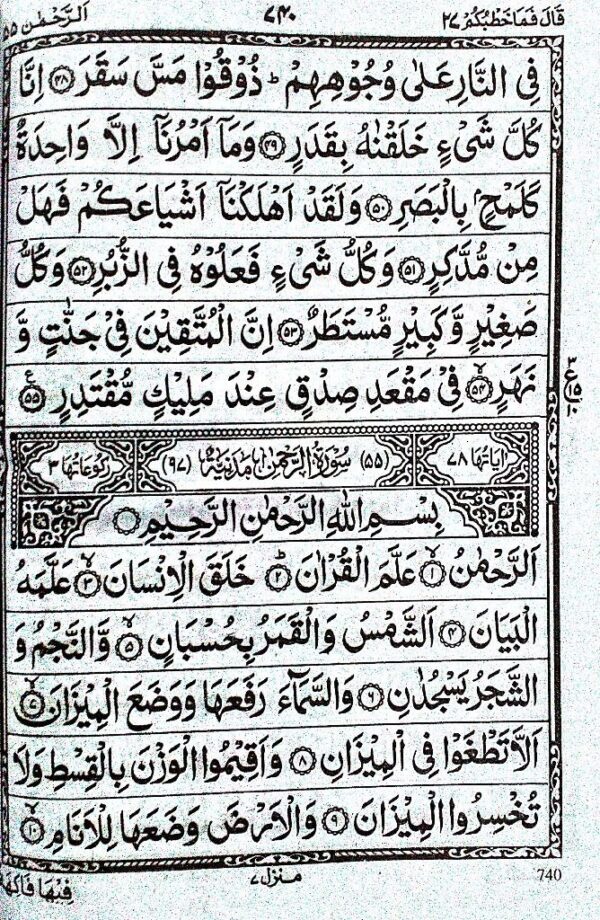 قَالَ فَمَا خَطْبُكُمْ ٢٧
٧٤٠
اَلرَّحْمٰن ٥٥
فِى النَّارِ عَلٰى وُجُوْهِهِمْ ؕ ذُوْقُوْا مَسَّ سَقَرَ ﴿۴۸﴾ اِنَّا
كُلَّ شَىْءٍ خَلَقْنٰهُ بِقَدَرٍ ﴿۴۹﴾ وَمَاۤ اَمْرُنَاۤ اِلَّا وَاحِدَةٌ
كَلَمْحٍۭ بِالْبَصَرِ ﴿۵۰﴾ وَلَقَدْ اَهْلَكْنَاۤ اَشْيَاعَكُمْ فَهَلْ
مِنْ مُّدَّكِرٍ ﴿۵۱﴾ وَكُلُّ شَىْءٍ فَعَلُوْهُ فِى الزُّبُرِ ﴿۵۲﴾ وَكُلُّ
صَغِيْرٍ وَّكَبِيْرٍ مُّسْتَطَرٌ ﴿۵۳﴾ اِنَّ الْمُتَّقِيْنَ فِىْ جَنّٰتٍ وَّ
نَهَرٍ ۙ﴿۵۴﴾ فِىْ مَقْعَدِ صِدْقٍ عِنْدَ مَلِيْكٍ مُّقْتَدِرٍ ﴿۵۵﴾ ع
٣ ع ١٥ ١٠
اٰيَاتُهَا ٧٨
(٥٥) سُوْرَةُ الرَّحْمٰنِ مَدَنِيَّةٌ (٩٧)
رُكُوْعَاتُهَا ٣
بِسْمِ اللهِ الرَّحْمٰنِ الرَّحِيْمِ
اَلرَّحْمٰنُ ۙ﴿۱﴾ عَلَّمَ الْقُرْاٰنَ ؕ﴿۲﴾ خَلَقَ الْاِنْسَانَ ۙ﴿۳﴾ عَلَّمَهُ
الْبَيَانَ ﴿۴﴾ اَلشَّمْسُ وَالْقَمَرُ بِحُسْبَانٍ ۙ﴿۵﴾ وَّالنَّجْمُ وَ
الشَّجَرُ يَسْجُدٰنِ ﴿۶﴾ وَالسَّمَآءَ رَفَعَهَا وَوَضَعَ الْمِيْزَانَ ۙ﴿۷﴾
اَلَّا تَطْغَوْا فِى الْمِيْزَانِ ﴿۸﴾ وَاَقِيْمُوا الْوَزْنَ بِالْقِسْطِ وَلَا
تُخْسِرُوا الْمِيْزَانَ ﴿۹﴾ وَالْاَرْضَ وَضَعَهَا لِلْاَنَامِ ۙ﴿۱۰﴾
740
منزل ٧
فِيْهَا فَاكِهَ